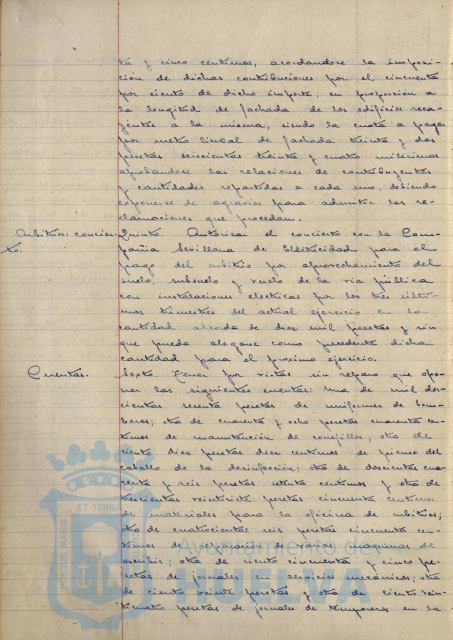 ta y cinco centimos, acordandose la imposi-
ción de dichas contribuciones por el cincuenta
por ciento de dicho importe, en proporción a
la longitud de fachada de los edificios reca-
yentes a la misma, siendo la cuota a pagar
por metro lineal de fachada treinta y dos
pesetas seiscientas treinta y cuatro milesimas
aprobandose las relaciones de contribuyentes
y cantidades repartidas a cada uno, debiendo
exponerse de agravios para admitir las re-
clamaciones que procedan.
Arbitrios: concier-
to.
Quinto. Autorizar el concierto con la Com-
pañia Sevillana de Electricidad para el
pago del arbitrio por aprovechamiento del
suelo, subsuelo y vuelo de la via pública
con instalaciones electricas por los tres ulti-
mos trimestres del actual ejercicio en la
cantidad alzada de diez mil pesetas y sin
que pueda alegarse como precedente dicha
cantidad para el proximo ejercicio.
Cuentas.
Sexto. Tener por vistas sin reparo que opo-
ner las siguientes cuentas: una de mil dos-
cientas sesenta pesetas de uniformes de bom-
beros; otra de cuarenta y ocho pesetas cuarenta cen-
timos de manutención de conejillos; otra de
ciento diez pesetas diez centimos de pienso del
caballo de la desinfección; otra de doscientas cua-
renta y seis pesetas setenta centimos y otra de
trescientas veintisiete pesetas cincuenta centimos
de materiales para la oficina de arbitrios;
otra de cuatrocientas seis pesetas cincuenta cen-
timos de reparación de varias maquinas de
escribir; otra de ciento cincuenta y cinco pe-
setas de jornales en servicios mecánicos; otra
de ciento veinte pesetas y otra de ciento vein-
ticuatro pesetas de jornales de temporeros en la
Ayuntamiento de
HUELVA
PORTUS MARIS
ET TERRAE